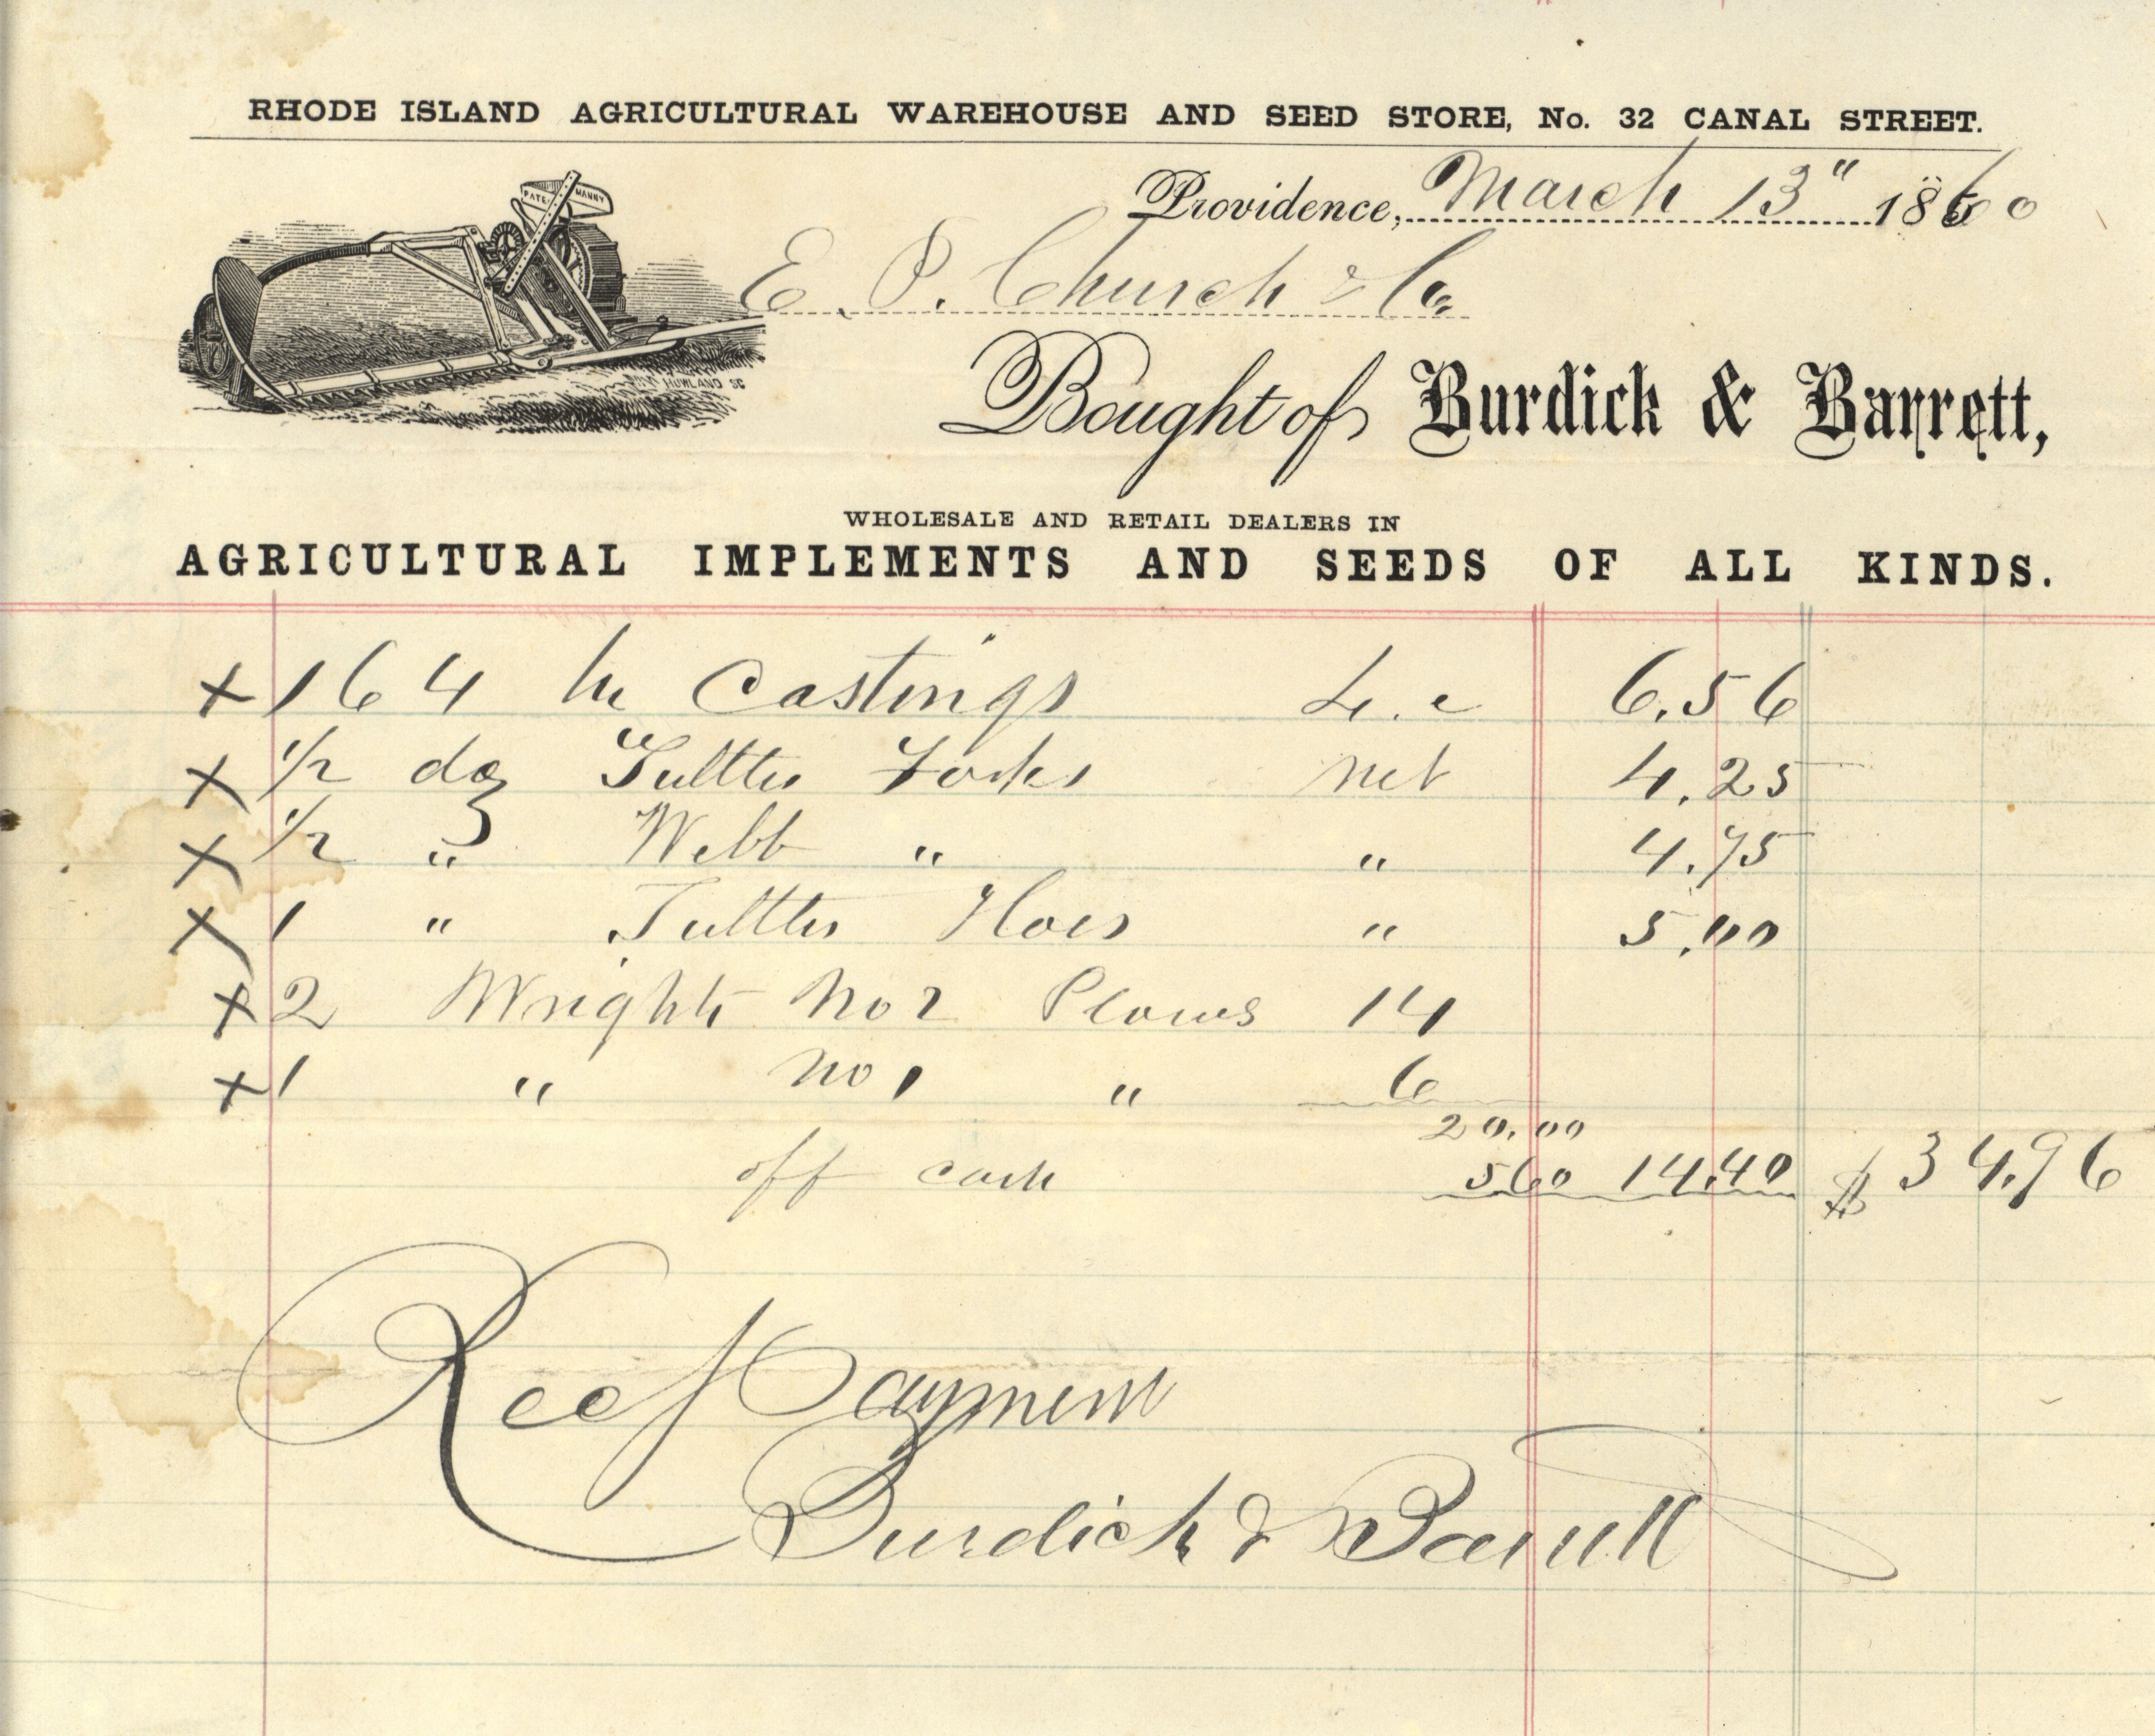 RHODE ISLAND AGRICULTURAL WAREHOUSE AND SEED STORE, No. 32 CANAL STREET.
PATENT MANNY
Providence, March 13" 1860
E. P. Church & Co.
HOWLAND SC
Bought of Burdick & Barrett,
WHOLESALE AND RETAIL DEALERS IN
AGRICULTURAL IMPLEMENTS AND SEEDS OF ALL KINDS.
x 164 lbs Castings 4.c 6.56
x 1/2 doz Tuttles Forks net 4.25
x 1/2 " Webb " " 4.75
x 1 " Tuttles Hoes " 5.00
x 2 Wrights No 2 Plows 14
x 1 " No 1 " 6
20.00
off cash 5.60 14.40 $34.96
Rec Payment
Burdick & Barrett